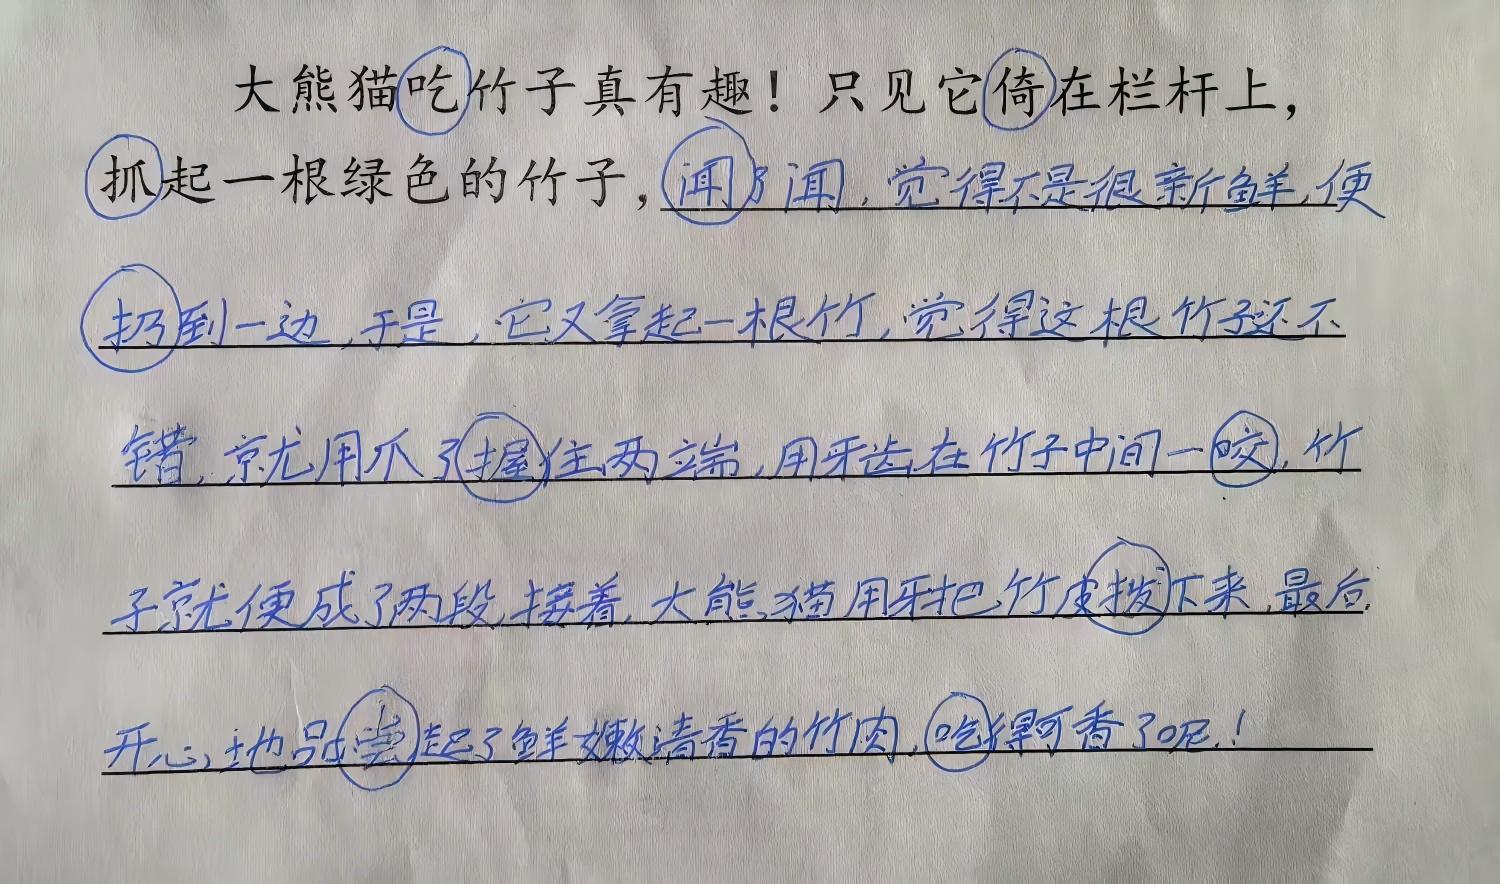 大熊猫吃竹子真有趣！只见它倚在栏杆上，
抓起一根绿色的竹子，闻了闻，觉得不是很新鲜，便
扔到一边，于是，它又拿起一根竹，觉得这根竹子还不
错，就用爪了握住两端，用牙齿在竹子中间一咬，竹
子就便成了两段，接着，大熊猫用牙把竹皮拨下来，最后
开心地品尝起了鲜嫩清香的竹肉，吃得可香了呢！